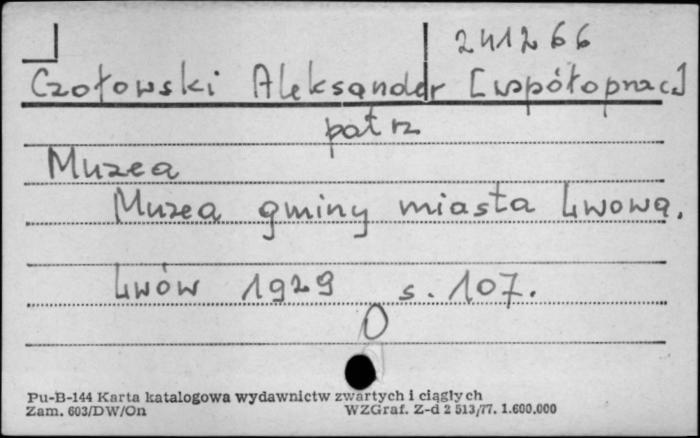 241266
Czołowski Aleksander [współoprac.]
patrz
Muzea
Muzea gminy miasta Lwowa.
Lwów 1929 s. 107.
Pu-B-144 Karta katalogowa wydawnictw zwartych i ciągłych
Zam. 603/DW/On WZGraf. Z-d 2 513/77. 1.600.000